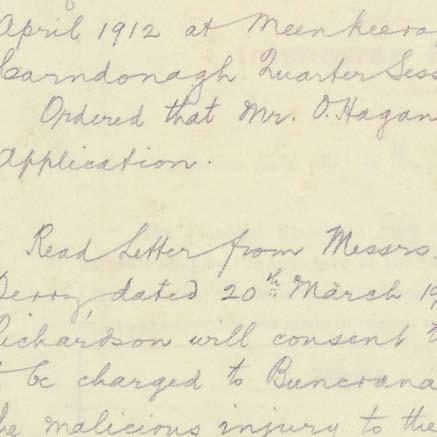 April 1912 at Meenkeera
Carndonagh Quarter Sess
Ordered that Mr. O'Hagan
Application.
Read Letter from Messrs.
Derry, dated 20th March 19
Richardson will consent t
t be charged to Buncrana
he malicious injury to the